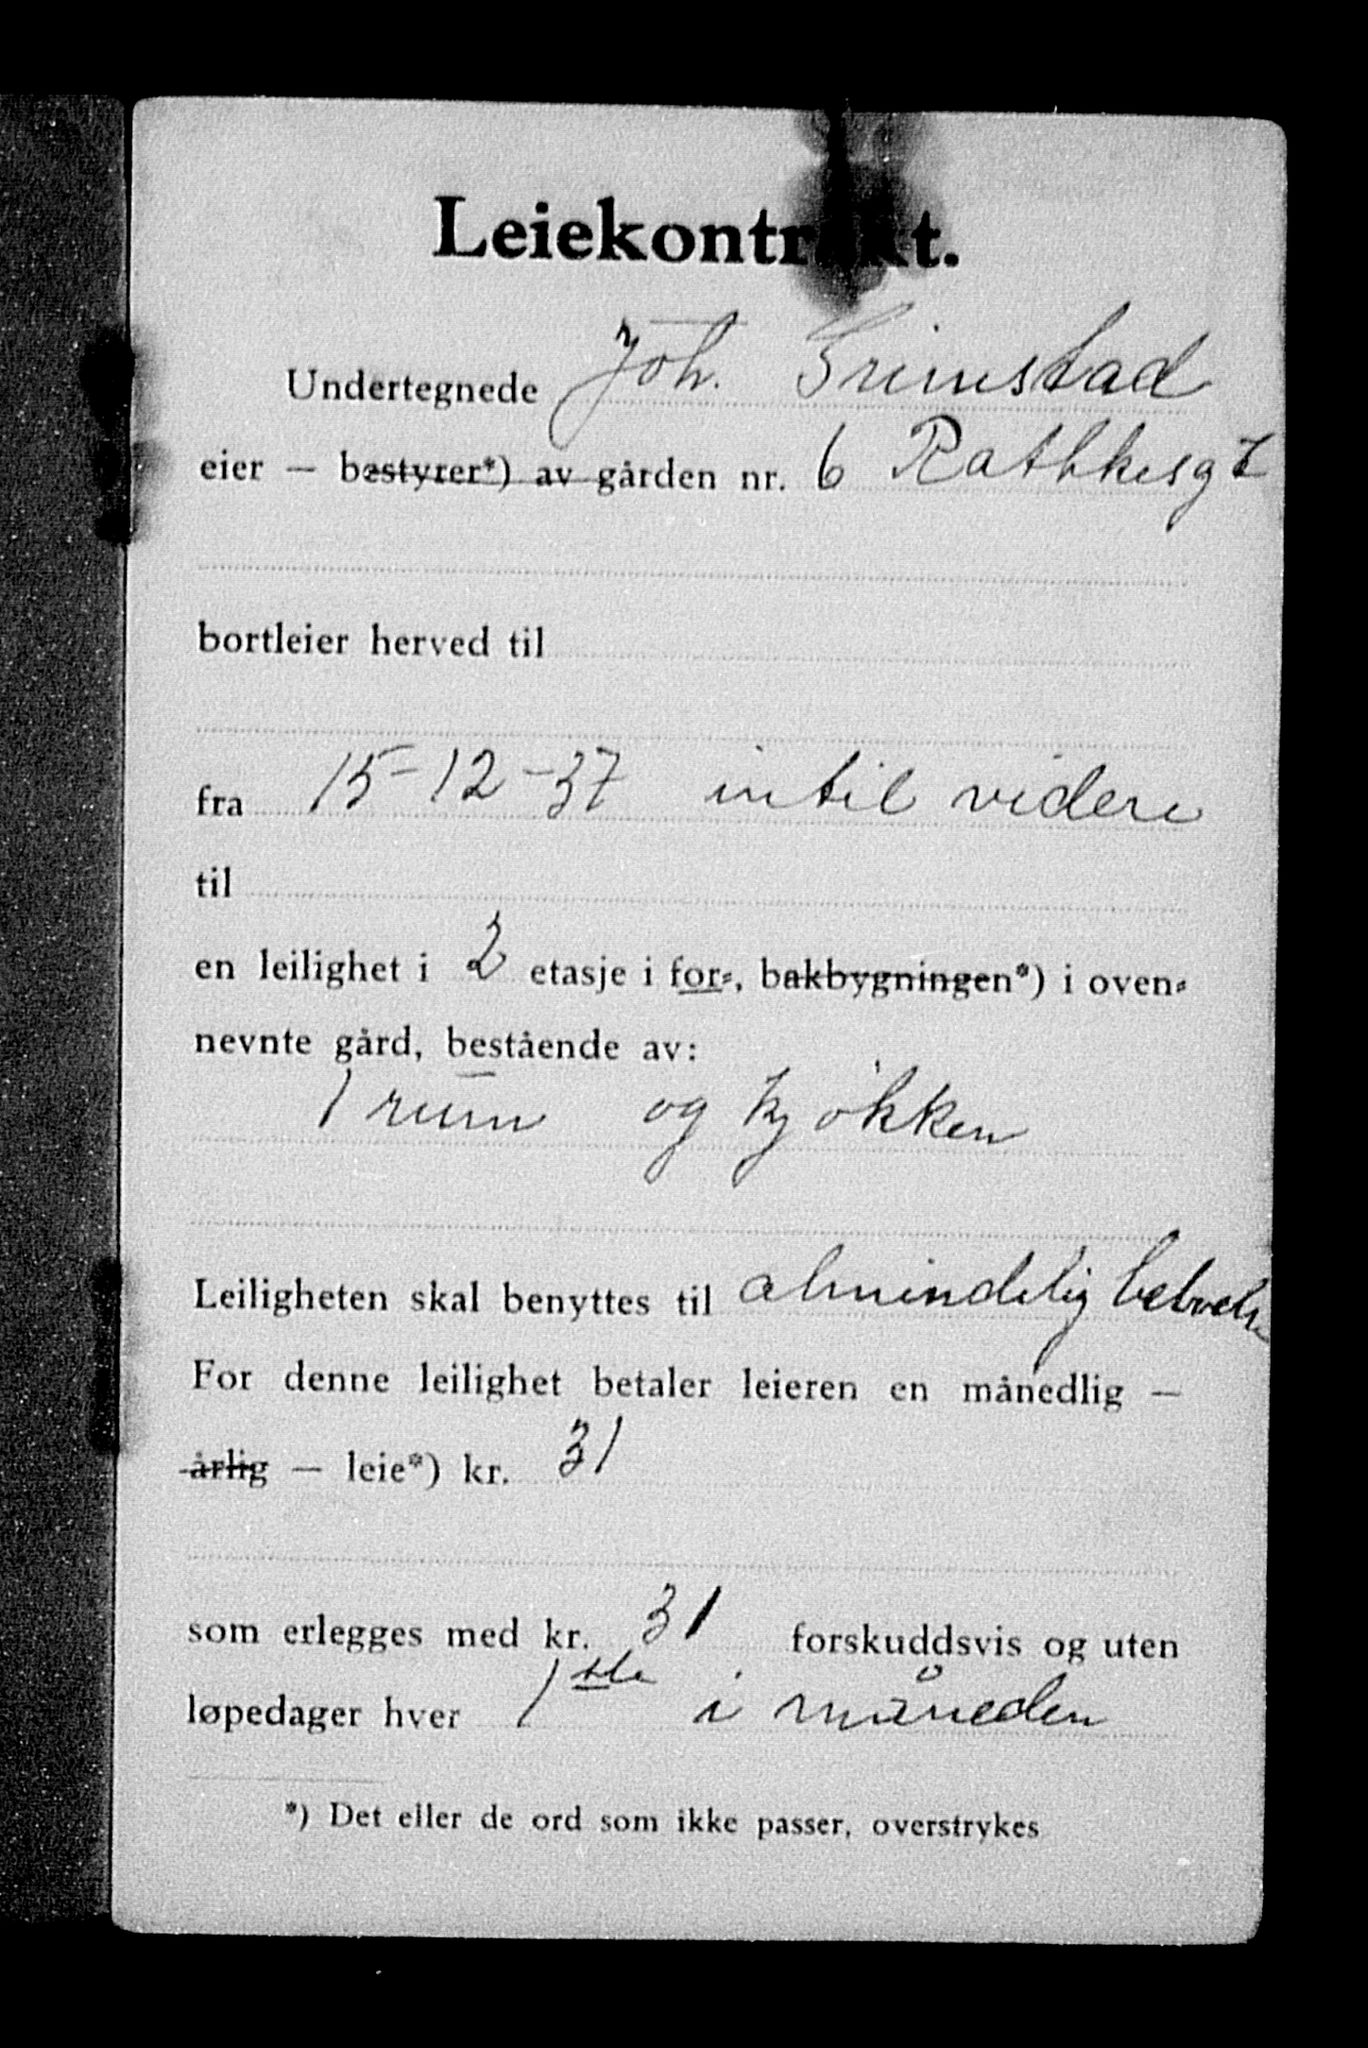 Leiekontrakt.
Undertegnede Joh. Grimstad
eier — bestyrer*) av gården nr. 6 Rathkesgt
bortleier herved til
fra 15-12-37 intil videre
til
en leilighet i 2 etasje i for-, bakbygningen*) i oven-
nevnte gård, bestående av:
1 rum og kjøkken
Leiligheten skal benyttes til almindelig beboelse
For denne leilighet betaler leieren en månedlig —
årlig — leie*) kr. 31
som erlegges med kr. 31 forskuddsvis og uten
løpedager hver 1ste i måneden
*) Det eller de ord som ikke passer, overstrykes